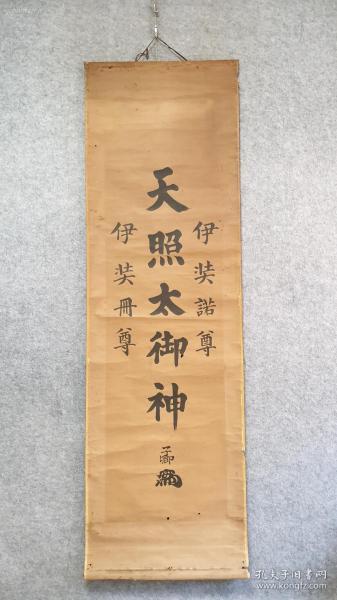 伊弉諾尊
天照太御神
伊弉冊尊
孔夫子旧书网
www.kongfz.com